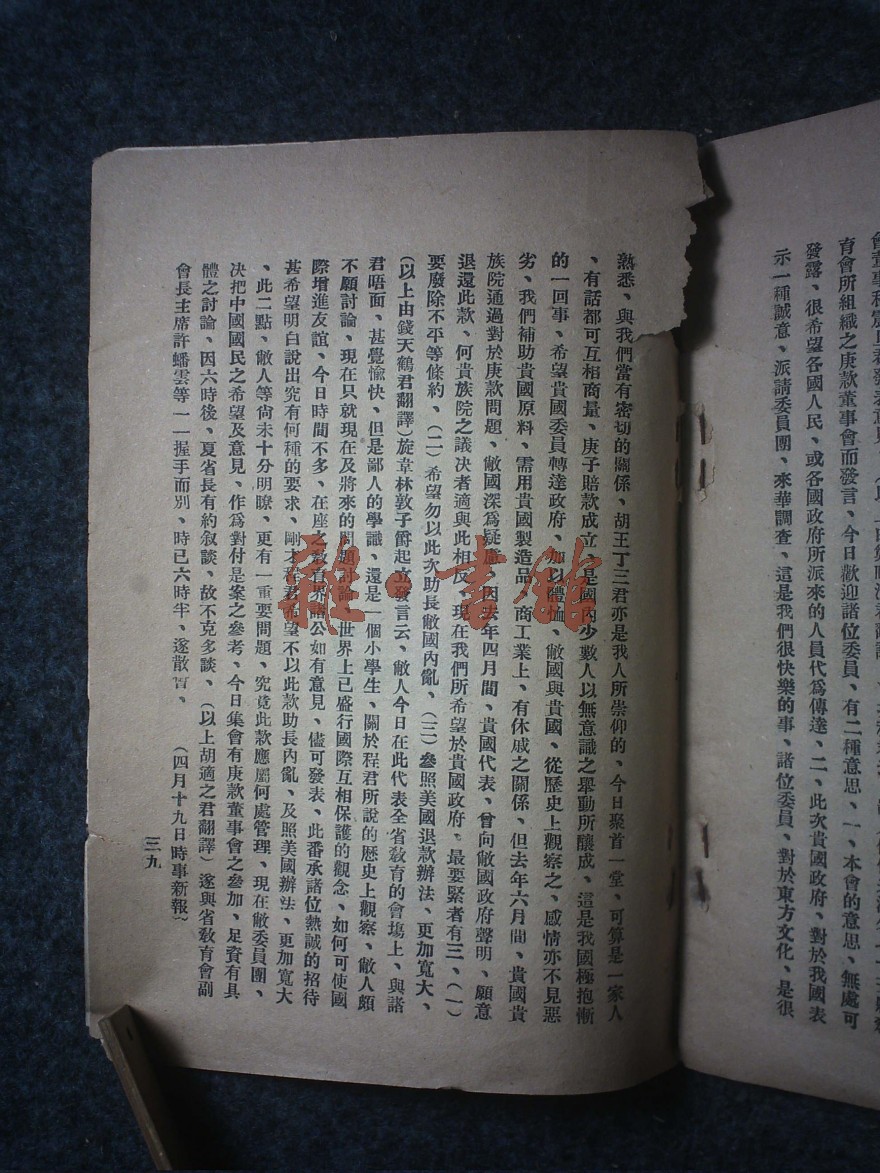 育會所組織之庚款董事會而發言、今日歡迎諸位委員、有二種意思、一、本會的意思、無處可
發露、很希望各國人民、或各國政府所派來的人員代爲傳達、二、此次貴國政府、對於我國表
示一種誠意、派請委員團、來華調查、這是我們很快樂的事、諸位委員、對於東方文化、是很
熟悉、與我們當有密切的關係、胡王丁三君亦是我人所崇仰的、今日聚首一堂、可算是一家人
、有話都可互相商量、庚子賠款成立、是國內少數人以無意識之舉動所釀成、這是我國極抱慚
的一回事、希望貴國委員轉達政府、加以體恤、敝國與貴國、從歷史上觀察之、感情亦不見惡
劣、我們補助貴國原料、需用貴國製造品、商工業上、有休戚之關係、但去年六月間、貴國貴
族院通過對於庚款問題、敝國深爲疑慮、因去年四月間、貴國代表、曾向敝國政府聲明、願意
退還此款、何貴族院之議决者適與此相反、現在我們所希望於貴國政府、最要緊者有三、(一)
要廢除不平等條約、(二)希望勿以此次助長敝國內亂、(三)參照美國退款辦法、更加寬大、
(以上由錢天鶴君翻譯)旋韋林敦子爵起立發言云、敝人今日在此代表全省敎育的會塲上、與諸
君唔面、甚覺愉快、但是鄙人的學識、還是一個小學生、關於程君所說的歷史上觀察、敝人頗
不願討論、現在只就現在及將來的問題討論、世界上已盛行國際互相保護的觀念、如何可使國
際增進友誼、今日時間不多、在座之敎育界諸公如有意見、儘可發表、此番承諸位熱誠的招待
甚希望明白說出究有何種的要求、剛才程君希望不以此款助長內亂、及照美國辦法、更加寬大
、此二點、敝人等尙未十分明瞭、更有一重要問題、究竟此款應屬何處管理、現在敝委員團、
决把中國國民之希望及意見、作爲對付是案之參考、今日集會有庚款董事會之參加、足資有具
體之討論、因六時後、夏省長有約叙談、故不克多談、(以上胡適之君翻譯)遂與省敎育會副
會長主席許蟠雲等一一握手而別、時已六時半、遂散會、 (四月十九日時事新報)
三九
雜·書館